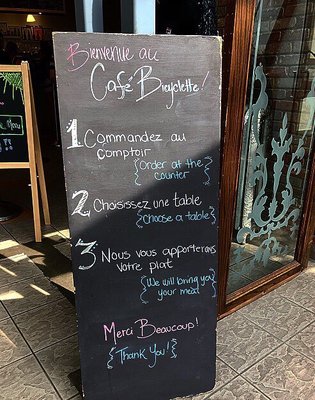 Bienvenue au
Café Bicyclette!
1 Commandez au
comptoir
{Order at the
counter}
2 Choisissez une table
{Choose a table}
3 Nous vous apporterons
votre plat
{We will bring you
your meal}
Merci Beaucoup!
{Thank You!}
Menu